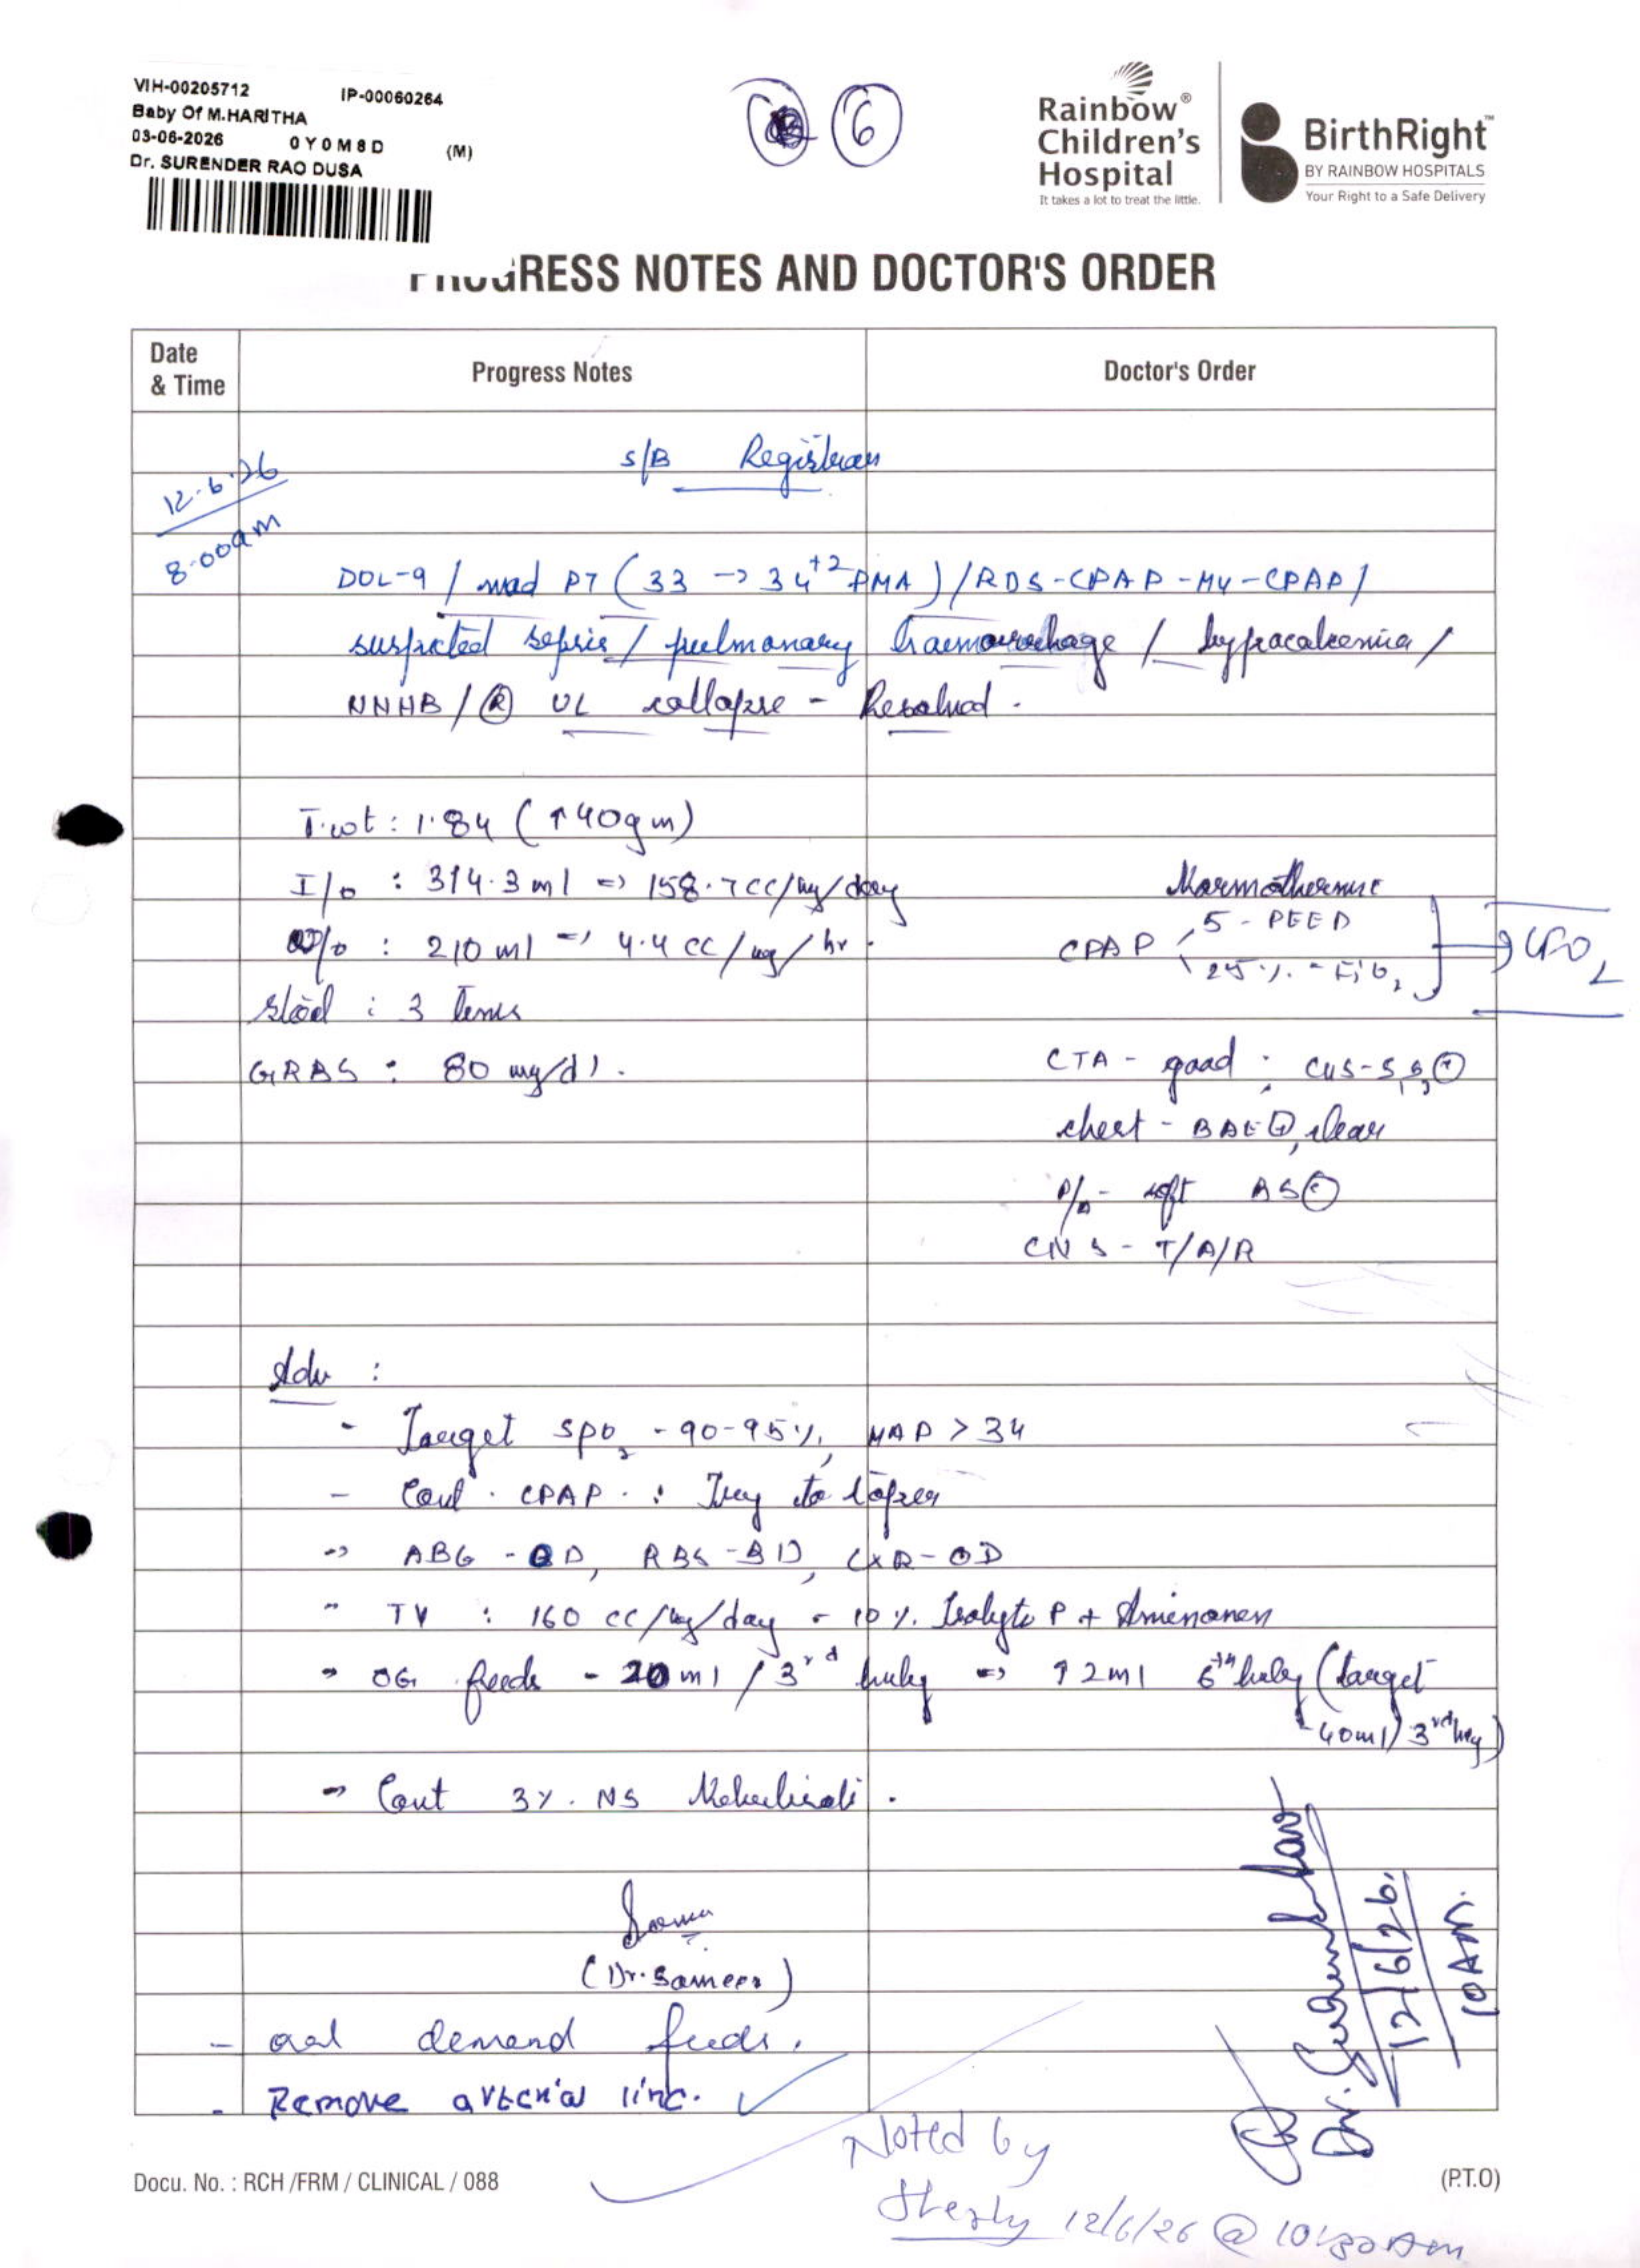 VIH-00205712 IP-00060264
Baby Of M.HARITHA
03-06-2026 0Y0M8D (M)
Dr. SURENDER RAO DUSA
6
Rainbow®
Children's
Hospital
It takes a lot to treat the little.
BirthRight™
BY RAINBOW HOSPITALS
Your Right to a Safe Delivery
PROGRESS NOTES AND DOCTOR'S ORDER
Date
& Time
Progress Notes
Doctor's Order
12.6.26
8.00am
S/B Registrar
DOL-9 / mod PT (33 -> 34+2 PMA) / RDS-CPAP-MV-CPAP /
suspected sepsis / pulmonary haemorrhage / hypocalcemia /
NNHB / (R) UL collapse - Resolved.
T.wt : 1.84 (↑40gm)
I/o : 314.3 ml => 158.7 cc/kg/day
Normothermic
/o : 210 ml => 4.4 cc/kg/hr.
CPAP 5 - PEEP
25%. - FiO2
Stool : 3 times
GRBS : 80 mg/dl.
CTA - good ; CVS - S1S2 (+)
chest - BAE (+), clear
P/A - soft BS (+)
CNS - T/A/R
Adv :
- Target SpO2 - 90-95%, MAP > 34
- Cont. CPAP. : Try to taper
-> ABG - OD, RBS - BD, CXR - OD
- TV : 160 cc/kg/day - 10%. Isolyte P + Aminoven
- OG feeds - 20 ml / 3rd hrly => ↑ 2ml 6th hrly (target
- 40ml / 3rd hrly)
- Cont 3%. NS Nebulisati.
(Dr. Sameer)
- oral demand feeds.
- Remove arterial line. ✓
12/6/26
10 Am.
Noted by
12/6/26 @ 10:30 Am
Docu. No. : RCH /FRM / CLINICAL / 088
(P.T.O)